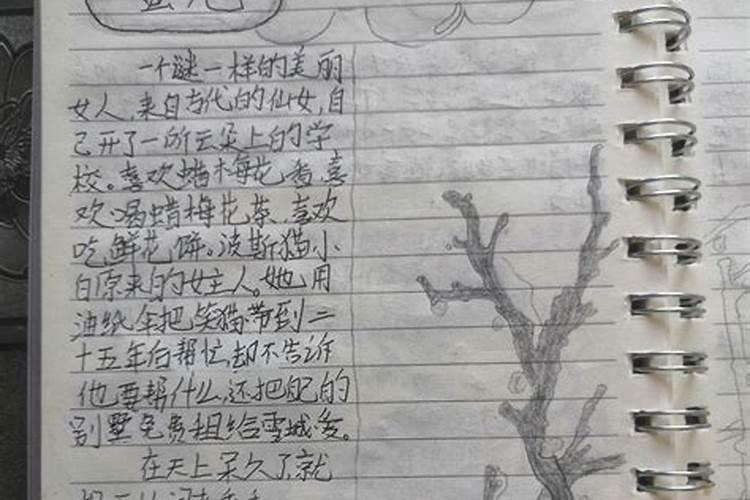 一个谜一样的美丽
女人,来自古代的仙女,自
己开了一所云朵上的学
校。喜欢蜡梅花香,喜
欢喝蜡梅花茶,喜欢
吃鲜花饼。波斯猫小
白原来的女主人。她用
油纸伞把笑猫带到二
十五年后帮忙,却不告诉
他要帮什么,还把自己的
别墅免费租给雪城爱。
在天上呆久了,就